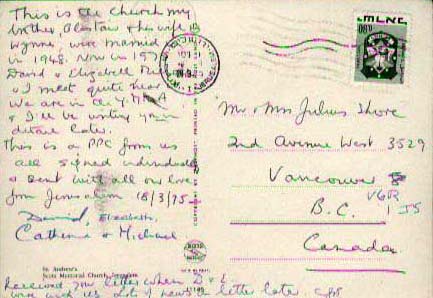 This is the church my
brother, Alastair & his wife
Wynne, were married
in 1948. Now in 197
David & Elizabeth
& I meet quite near
We are in a Y.M.C.A
& I'll be writing you in
detail later.
This is a PPC from us
all signed individually
& sent with all our love
from Jerusalem 18/3/75
David, Elizabeth,
Catherine & Michael
St. Andrew's
Scots Memorial Church, Jerusalem
Received your letter when D & E
were with us. Lots of news & letter later.
JERUSALEM
0.80
Mr & Mrs Julius Shore
2nd Avenue West 3529
Vancouver 8
B.C.
V6R
1J5
Canada